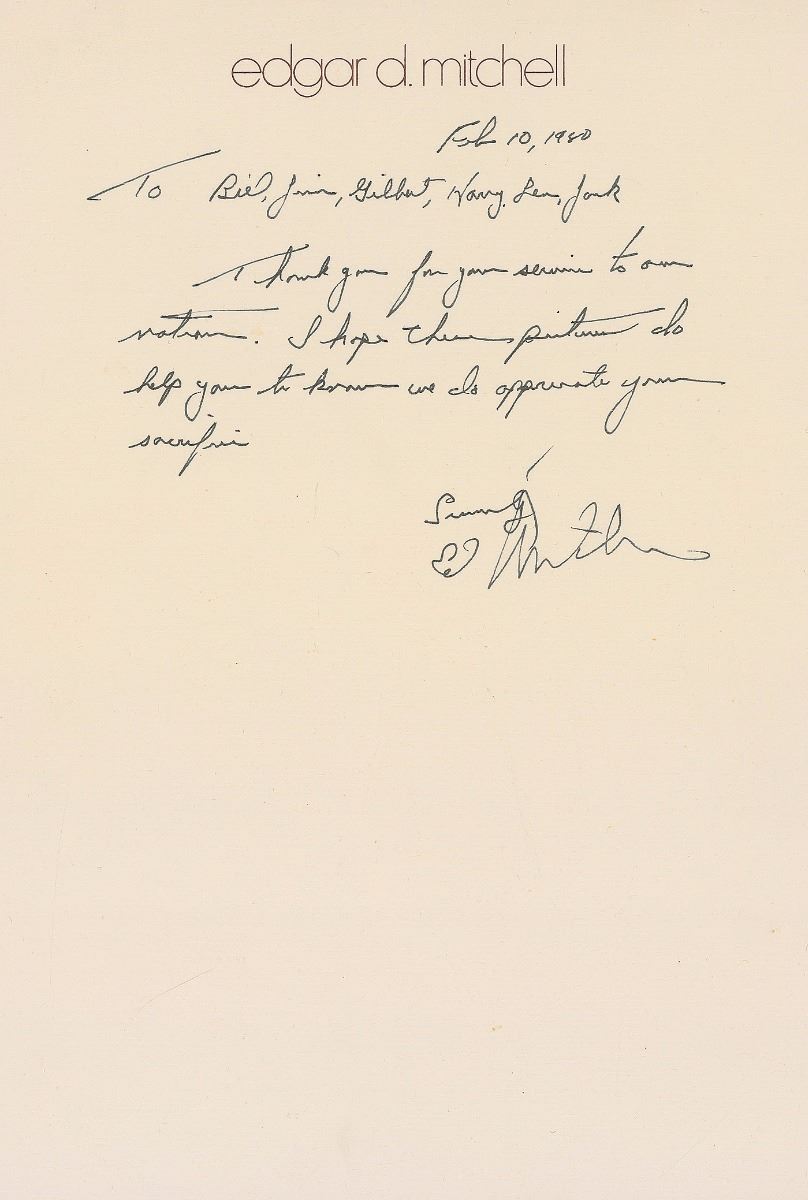 edgar d. mitchell
Feb 10, 1980
To Bill, Jim, Gilbert, Harry, Len, Jack
Thank you for your service to our
nation. I hope these pictures do
help you to know we do appreciate your
sacrifice
Sincerely
Ed Mitchell